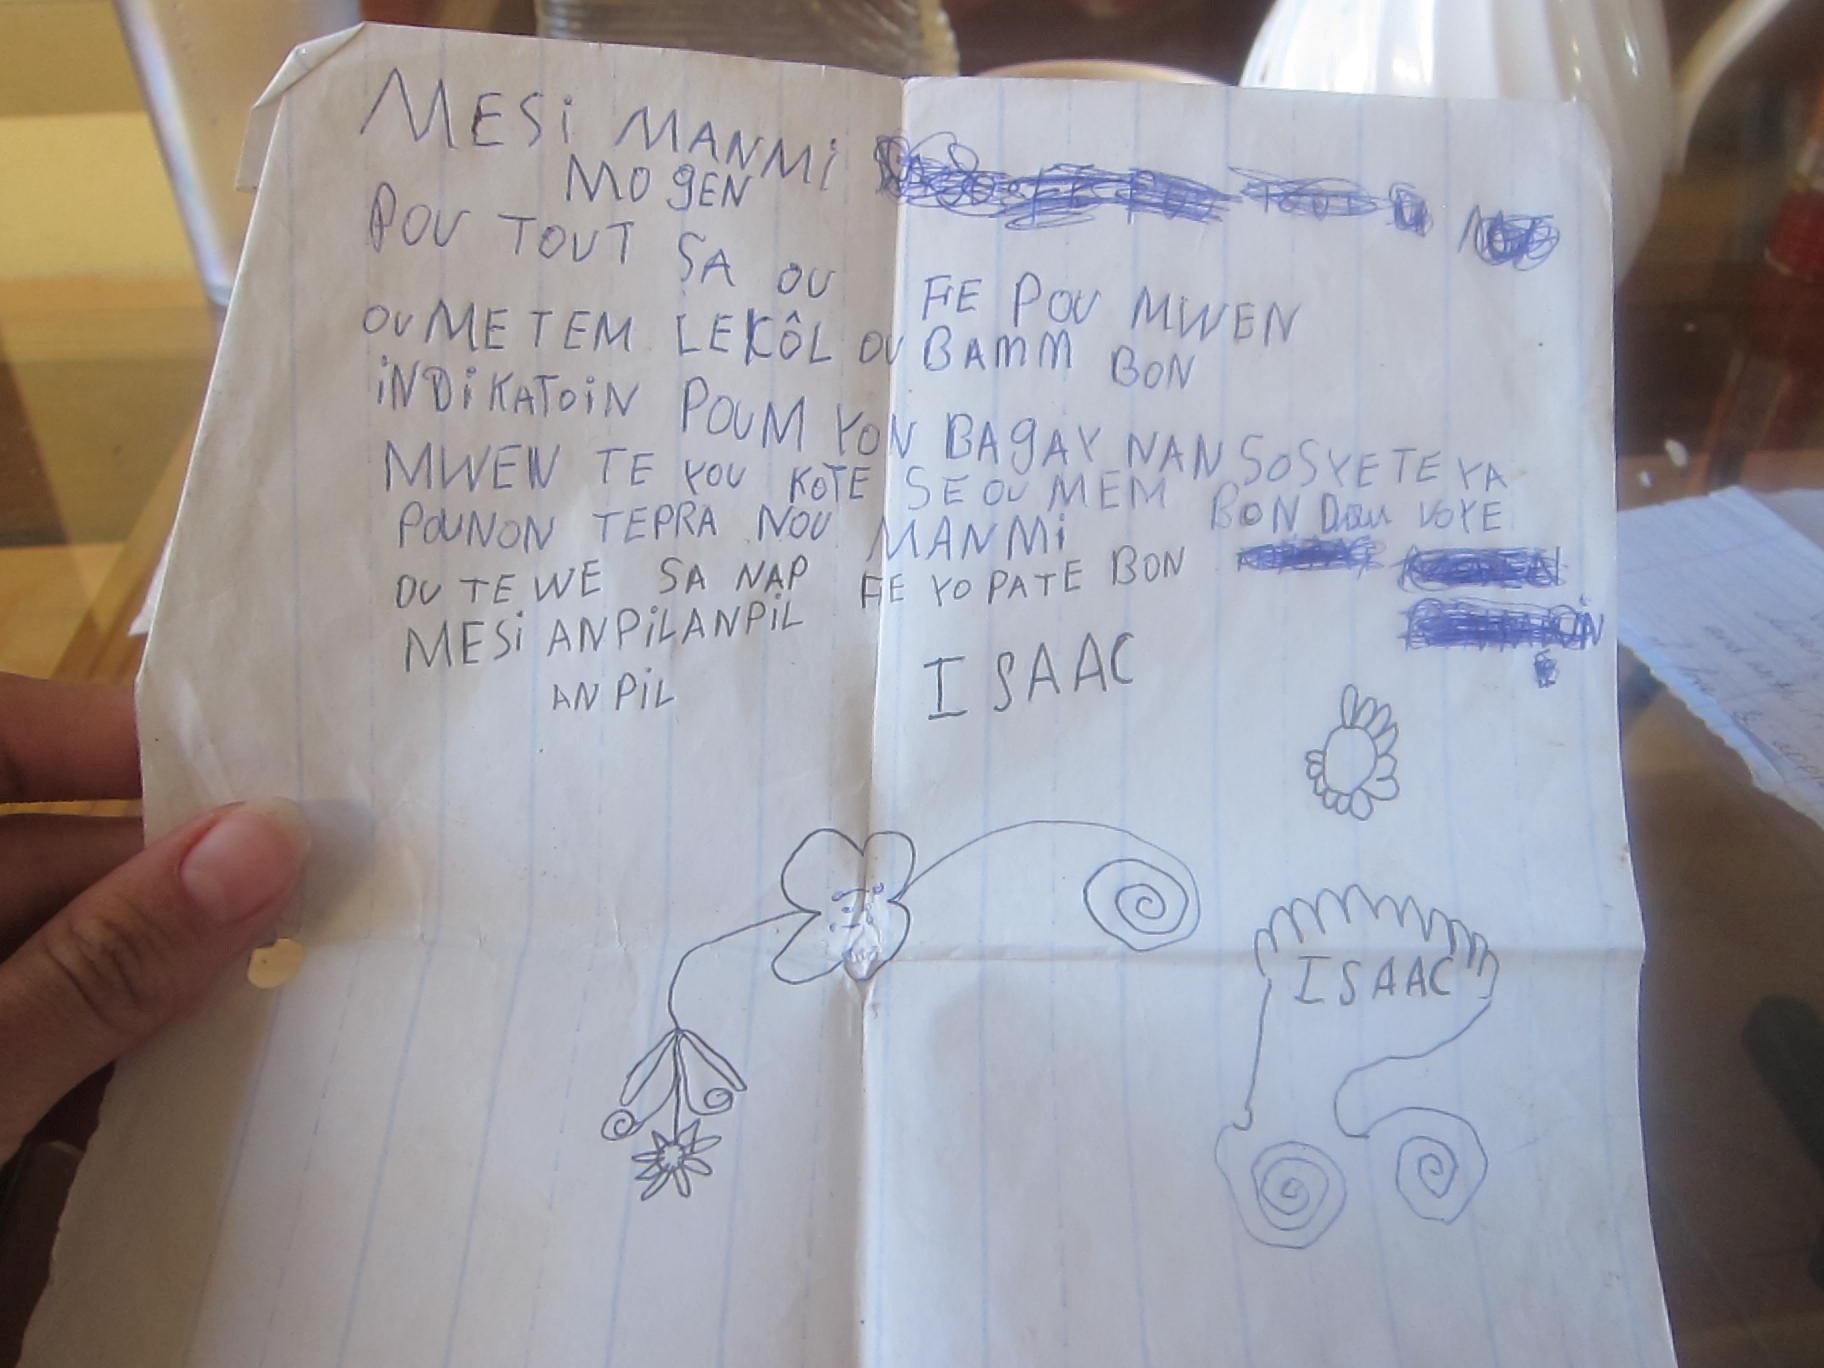 MESi MANMi
MOgEN
POU TOUT SA OU FE POU MWEN
OU METEM LEKÔL OU BAMM BON
iNDiKATOiN POUM YON BAGAY NAN SOSYETE YA
MWEN TE YOU KOTE SE OU MEM BON Dieu VOYE
POUNON TEPRA NOU MANMi
OU TE WE SA NAP FE YO PATE BON
MESi ANPiLANPiL
AN PiL
ISAAC
ISAAC